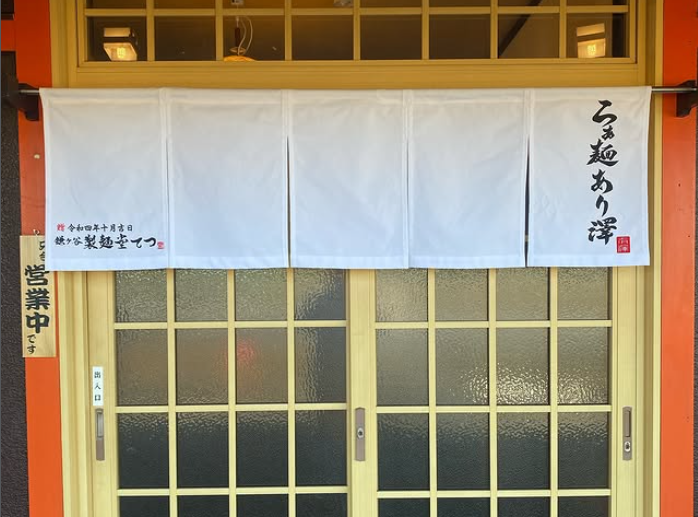 らぁ麺あり澤
贈 令和四年十月吉日
鎌ヶ谷 製麺堂てつ
営業中です
出入口